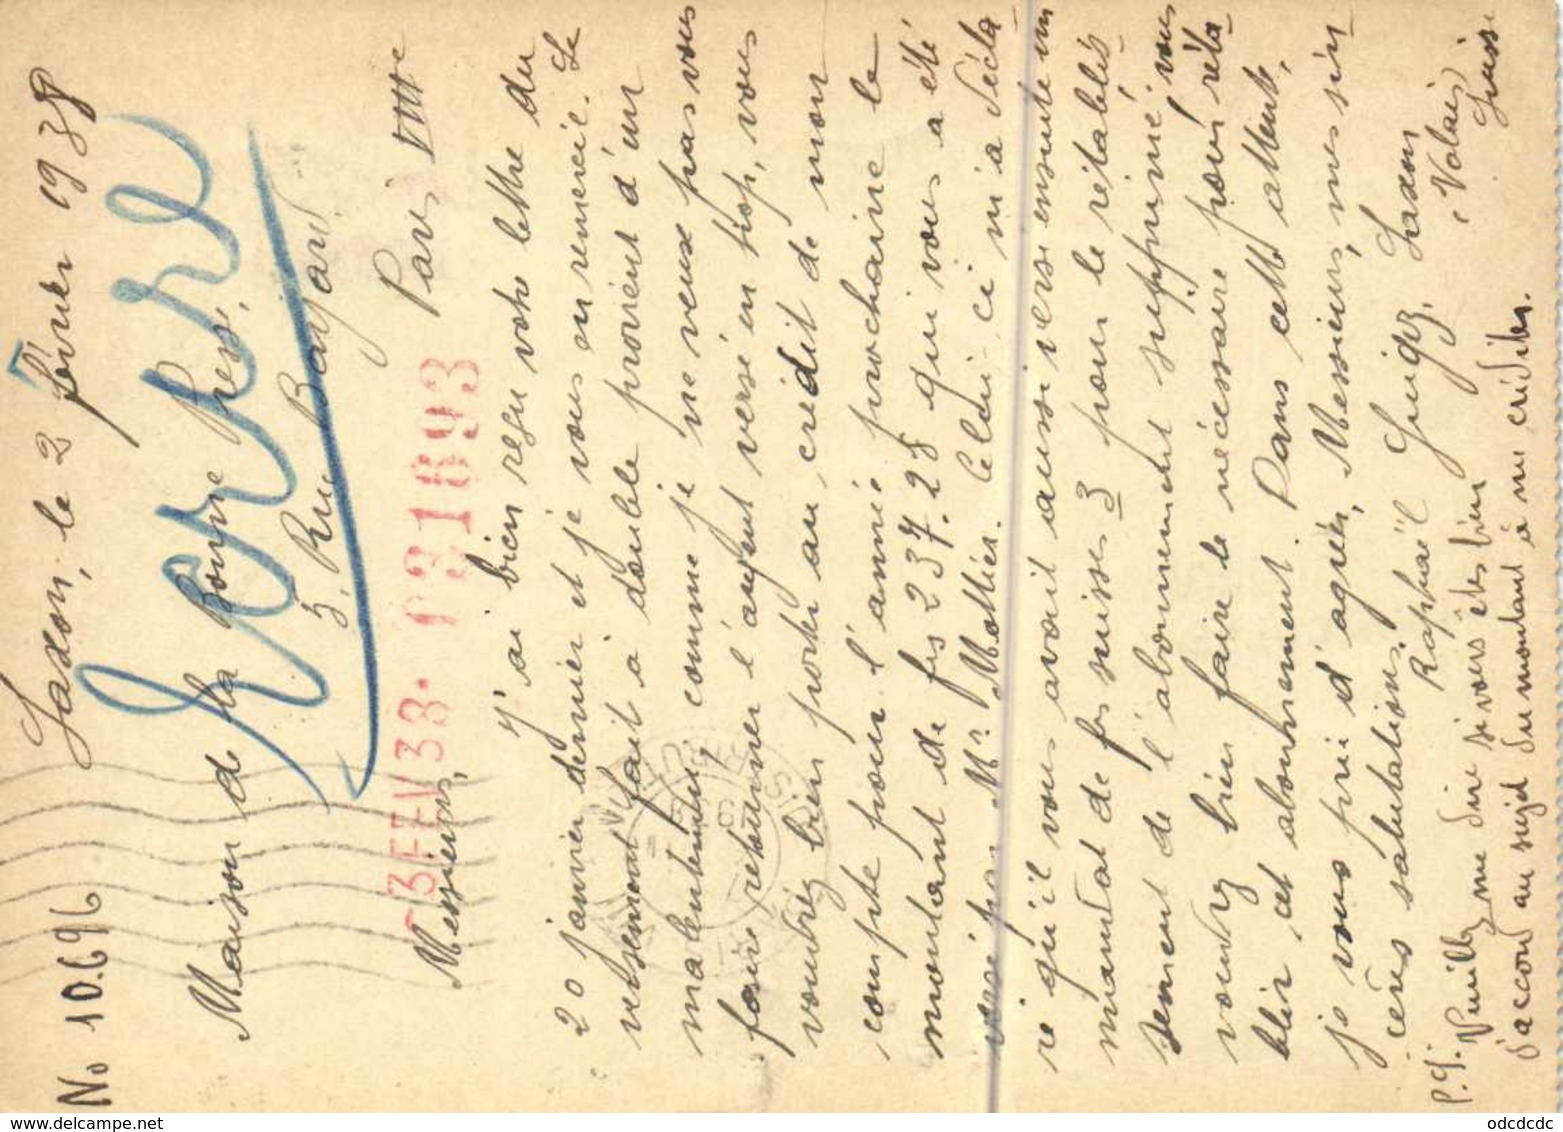 No 10.696 Saxon, le 2 février 1938
Maison de la Bonne Presse,
5. Rue Bayard
Paris VIIIe
3 FEV 38 · 031693
Messieurs,
J'ai bien reçu votre lettre du
20 janvier dernier et je vous en remercie. Le
versement fait à double provient d'un
malentendu; comme je ne veux pas vous
faire retourner l'argent versé en trop, vous
voudrez bien porter au crédit de mon
compte pour l'année prochaine le
montant de frs 237.28 qui vous a été
versé par Mr Mottier. Celui-ci m'a décla-
ré qu'il vous avait aussi versé ensuite un
mandat de frs suisses 3 pour le rétablis-
sement de l'abonnement supprimé; vous
voudrez bien faire le nécessaire pour réta-
blir cet abonnement. Dans cette attente,
je vous prie d'agréer, Messieurs, mes sin-
cères salutations.
Raphaël Guigoz, Saxon
(Valais)
Suisse
P.S. Veuillez me dire si vous êtes bien
d'accord au sujet du montant à me créditer.
odcdcdc